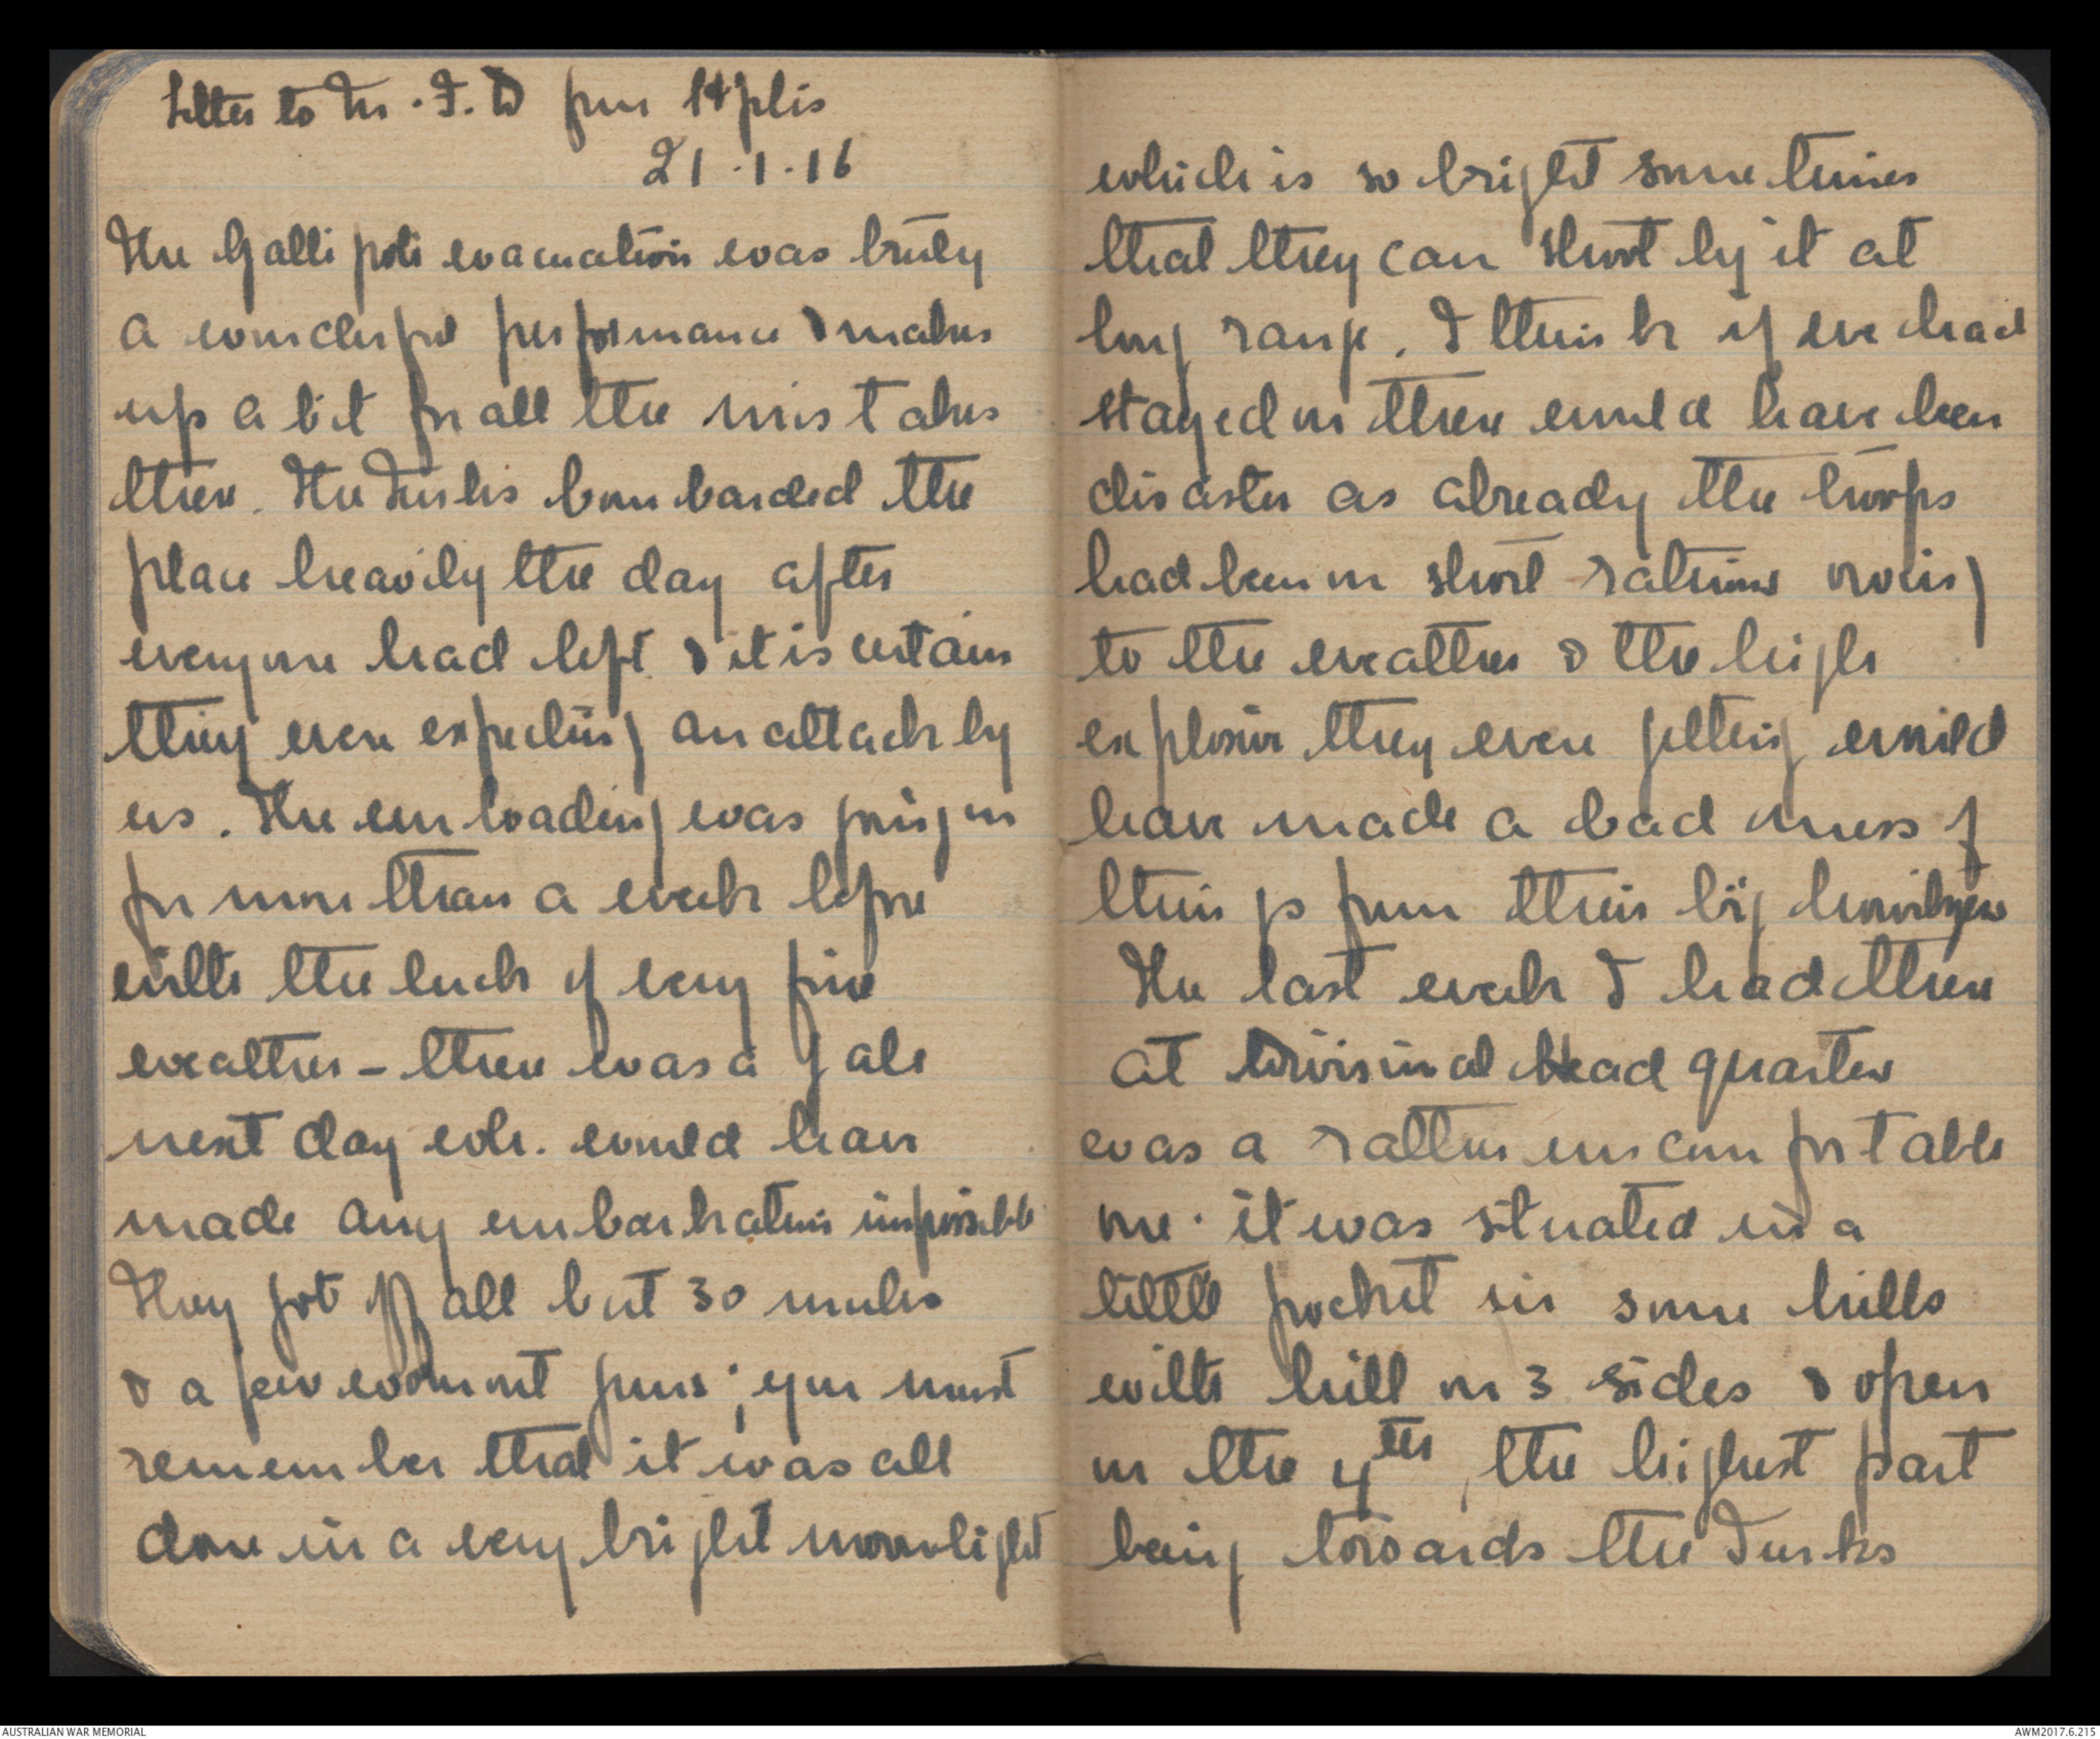 Letter to M.F.D from Hqlis
21.1.16
The Gallipoli evacuation was truly
a wonderful performance & makes
up a bit for all the mistakes
there. The Turks bombarded the
place heavily the day after
everyone had left & it is certain
they were expecting an attack by
us. The unloading was going on
for more than a week before
with the luck of very fine
weather - there was a gale
next day wh. would have
made any embarkation impossible
They got off all but 30 mules
& a few wornout guns; you must
remember that it was all
done in a very bright moonlight
which is so bright sometimes
that they can shoot by it at
long range. I think if we had
stayed on there would have been
disaster as already the troops
had been on short rations owing
to the weather & the high
explosive they were getting would
have made a bad mess of
things from their big howitzers
The last week I had there
at Divisional Head quarters
was a rather uncomfortable
one. it was situated in a
little pocket in some hills
with hill on 3 sides & open
on the 4th, the highest part
being towards the Turks
AUSTRALIAN WAR MEMORIAL
AWM2017.6.215